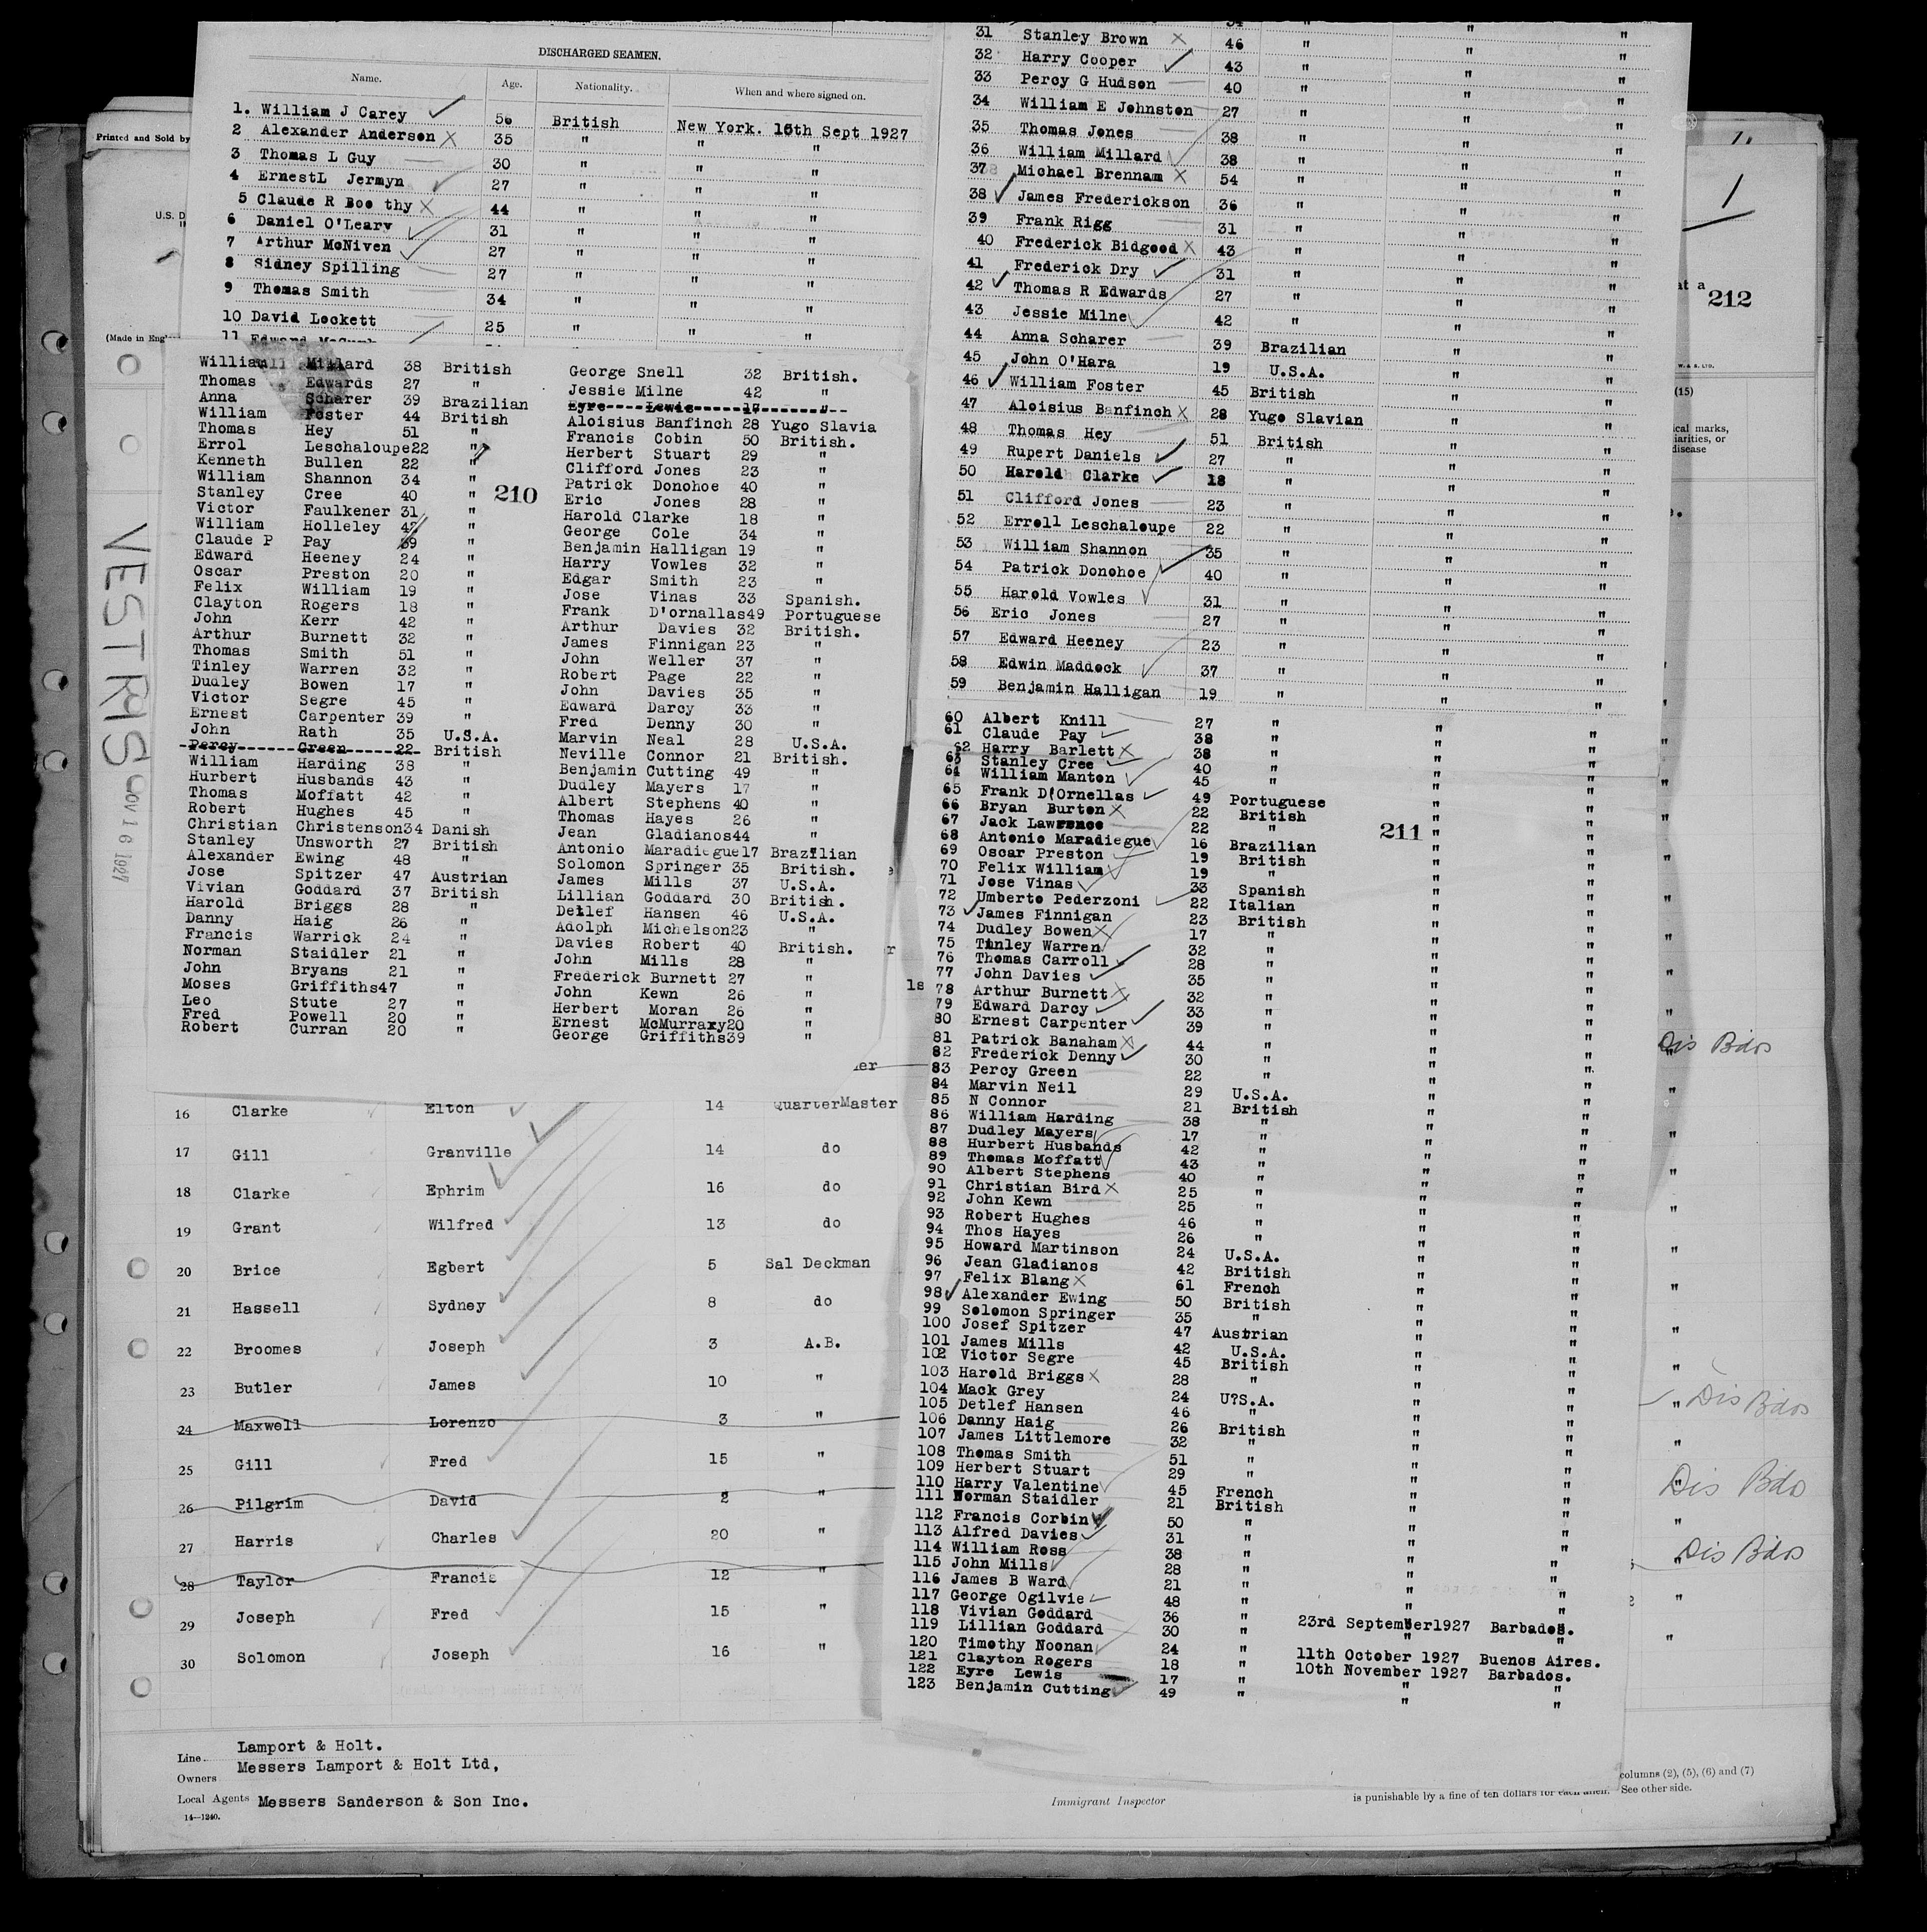 DISCHARGED SEAMEN.
Name. Age. Nationality. When and where signed on.
1. William J Carey 56 British New York. 16th Sept 1927
2 Alexander Anderson 35 " " "
3 Thomas L Guy 30 " " "
4 ErnestL Jermyn 27 " " "
5 Claude R Boo thy 44 " " "
6 Daniel O'Leary 31 " " "
7 Arthur McNiven 27 " " "
8 Sidney Spilling 27 " " "
9 Thomas Smith 34 " " "
10 David Lockett 25 " " "
11 Edward
Printed and Sold by
U.S. D
(Made in Engl
William Millard 38 British George Snell 32 British.
Thomas Edwards 27 " Jessie Milne 42 "
Anna Scharer 39 Brazilian Eyre Lewis 17 "
William Foster 44 British Aloisius Banfinch 28 Yugo Slavia
Thomas Hey 51 " Francis Cobin 50 British.
Errol Leschaloupe22 " Herbert Stuart 29 "
Kenneth Bullen 22 " Clifford Jones 23 "
William Shannon 34 " Patrick Donohoe 40 "
Stanley Cree 40 " 210 Eric Jones 28 "
Victor Faulkener 31 " Harold Clarke 18 "
William Holleley 42 " George Cole 34 "
Claude P Pay 39 " Benjamin Halligan 19 "
Edward Heeney 24 " Harry Vowles 32 "
Oscar Preston 20 " Edgar Smith 23 "
Felix William 19 " Jose Vinas 33 Spanish.
Clayton Rogers 18 " Frank D'ornallas49 Portuguese
John Kerr 42 " Arthur Davies 32 British.
Arthur Burnett 32 " James Finnigan 23 "
Thomas Smith 51 " John Weller 37 "
Tinley Warren 32 " Robert Page 22 "
Dudley Bowen 17 " John Davies 35 "
Victor Segre 45 " Edward Darcy 33 "
Ernest Carpenter 39 " Fred Denny 30 "
John Rath 35 U.S.A. Marvin Neal 28 U.S.A.
Percy Green 22 British Neville Connor 21 British.
William Harding 38 " Benjamin Cutting 49 "
Hurbert Husbands 43 " Dudley Mayers 17 "
Thomas Moffatt 42 " Albert Stephens 40 "
Robert Hughes 45 " Thomas Hayes 26 "
Christian Christenson34 Danish Jean Gladianos44 "
Stanley Unsworth 27 British Antonio Maradiegue17 Brazilian
Alexander Ewing 48 " Solomon Springer 35 British.
Jose Spitzer 47 Austrian James Mills 37 U.S.A.
Vivian Goddard 37 British Lillian Goddard 30 British.
Harold Briggs 28 " Detlef Hansen 46 U.S.A.
Danny Haig 26 " Adolph Michelson23 "
Francis Warrick 24 " Davies Robert 40 British.
Norman Staidler 21 " John Mills 28 "
John Bryans 21 " Frederick Burnett 27 "
Moses Griffiths47 " John Kewn 26 "
Leo Stute 27 " Herbert Moran 26 "
Fred Powell 20 " Ernest McMurraxy20 "
Robert Curran 20 " George Griffiths39 "
VESTRIS
NOV 16 1927
16 Clarke Elton 14 QuarterMaster
17 Gill Granville 14 do
18 Clarke Ephrim 16 do
19 Grant Wilfred 13 do
20 Brice Egbert 5 Sal Deckman
21 Hassell Sydney 8 do
22 Broomes Joseph 3 A.B.
23 Butler James 10 "
24 Maxwell Lorenzo 3 "
25 Gill Fred 15 "
26 Pilgrim David 2 "
27 Harris Charles 20 "
28 Taylor Francis 12 "
29 Joseph Fred 15 "
30 Solomon Joseph 16 "
Line Lamport & Holt.
Owners Messers Lamport & Holt Ltd,
Local Agents Messers Sanderson & Son Inc.
14—1240.
31 Stanley Brown 46 " " "
32 Harry Cooper 43 " " "
33 Percy G Hudson 40 " " "
34 William E Johnston 27 " " "
35 Thomas Jones 38 " " "
36 William Millard 38 " " "
37 Michael Brennam 54 " " "
38 James Frederickson 36 " " "
39 Frank Rigg 31 " " "
40 Frederick Bidgood 43 " " "
41 Frederick Dry 31 " " "
42 Thomas R Edwards 27 " " "
43 Jessie Milne 42 " " "
44 Anna Scharer 39 Brazilian " "
45 John O'Hara 19 U.S.A. " "
46 William Foster 45 British " "
47 Aloisius Banfinch 28 Yugo Slavian " "
48 Thomas Hey 51 British " "
49 Rupert Daniels 27 " " "
50 Harold Clarke 18 " " "
51 Clifford Jones 23 " " "
52 Erroll Leschaloupe 22 " " "
53 William Shannon 35 " " "
54 Patrick Donohoe 40 " " "
55 Harold Vowles 31 " " "
56 Eric Jones 27 " " "
57 Edward Heeney 23 " " "
58 Edwin Maddock 37 " " "
59 Benjamin Halligan 19 " " "
60 Albert Knill 27 " " "
61 Claude Pay 38 " " "
62 Harry Barlett 38 " " "
63 Stanley Cree 40 " " "
64 William Manton 45 " " "
65 Frank D'Ornellas 49 Portuguese " "
66 Bryan Burton 22 British " "
67 Jack Lawrence 22 " 211 " "
68 Antonio Maradiegue 16 Brazilian " "
69 Oscar Preston 19 British " "
70 Felix William 19 " " "
71 Jose Vinas 33 Spanish " "
72 Umberto Pederzoni 22 Italian " "
73 James Finnigan 23 British " "
74 Dudley Bowen 17 " " "
75 Tinley Warren 32 " " "
76 Thomas Carroll 28 " " "
77 John Davies 35 " " "
78 Arthur Burnett 32 " " "
79 Edward Darcy 33 " " "
80 Ernest Carpenter 39 " " "
81 Patrick Banaham 44 " " "
82 Frederick Denny 30 " " "
83 Percy Green 22 " " "
84 Marvin Neil 29 U.S.A. " "
85 N Connor 21 British " "
86 William Harding 38 " " "
87 Dudley Mayers 17 " " "
88 Hurbert Husbands 42 " " "
89 Thomas Moffatt 43 " " "
90 Albert Stephens 40 " " "
91 Christian Bird 25 " " "
92 John Kewn 25 " " "
93 Robert Hughes 46 " " "
94 Thos Hayes 26 " " "
95 Howard Martinson 24 U.S.A. " "
96 Jean Gladianos 42 British " "
97 Felix Blang 61 French " "
98 Alexander Ewing 50 British " "
99 Solomon Springer 35 " " "
100 Josef Spitzer 47 Austrian " "
101 James Mills 42 U.S.A. " "
102 Victor Segre 45 British " "
103 Harold Briggs 28 " " "
104 Mack Grey 24 U?S.A. " "
105 Detlef Hansen 46 " " "
106 Danny Haig 26 British " "
107 James Littlemore 32 " " "
108 Thomas Smith 51 " " "
109 Herbert Stuart 29 " " "
110 Harry Valentine 45 French " "
111 Norman Staidler 21 British " "
112 Francis Corbin 50 " " "
113 Alfred Davies 31 " " "
114 William Ross 38 " " "
115 John Mills 28 " " "
116 James B Ward 21 " " "
117 George Ogilvie 48 " " "
118 Vivian Goddard 36 " 23rd September1927 Barbados.
119 Lillian Goddard 30 " " "
120 Timothy Noonan 24 " 11th October 1927 Buenos Aires.
121 Clayton Rogers 18 " 10th November 1927 Barbados.
122 Eyre Lewis 17 " " "
123 Benjamin Cutting 49 " " "
Immigrant Inspector
is punishable by a fine of ten dollars for each alien. See other side.
columns (2), (5), (6) and (7)
1
at a
212
W. & S. LTD.
(15)
ical marks,
iarities, or
disease
Dis Bdos
Dis Bdos
Dis Bdo
Dis Bdos